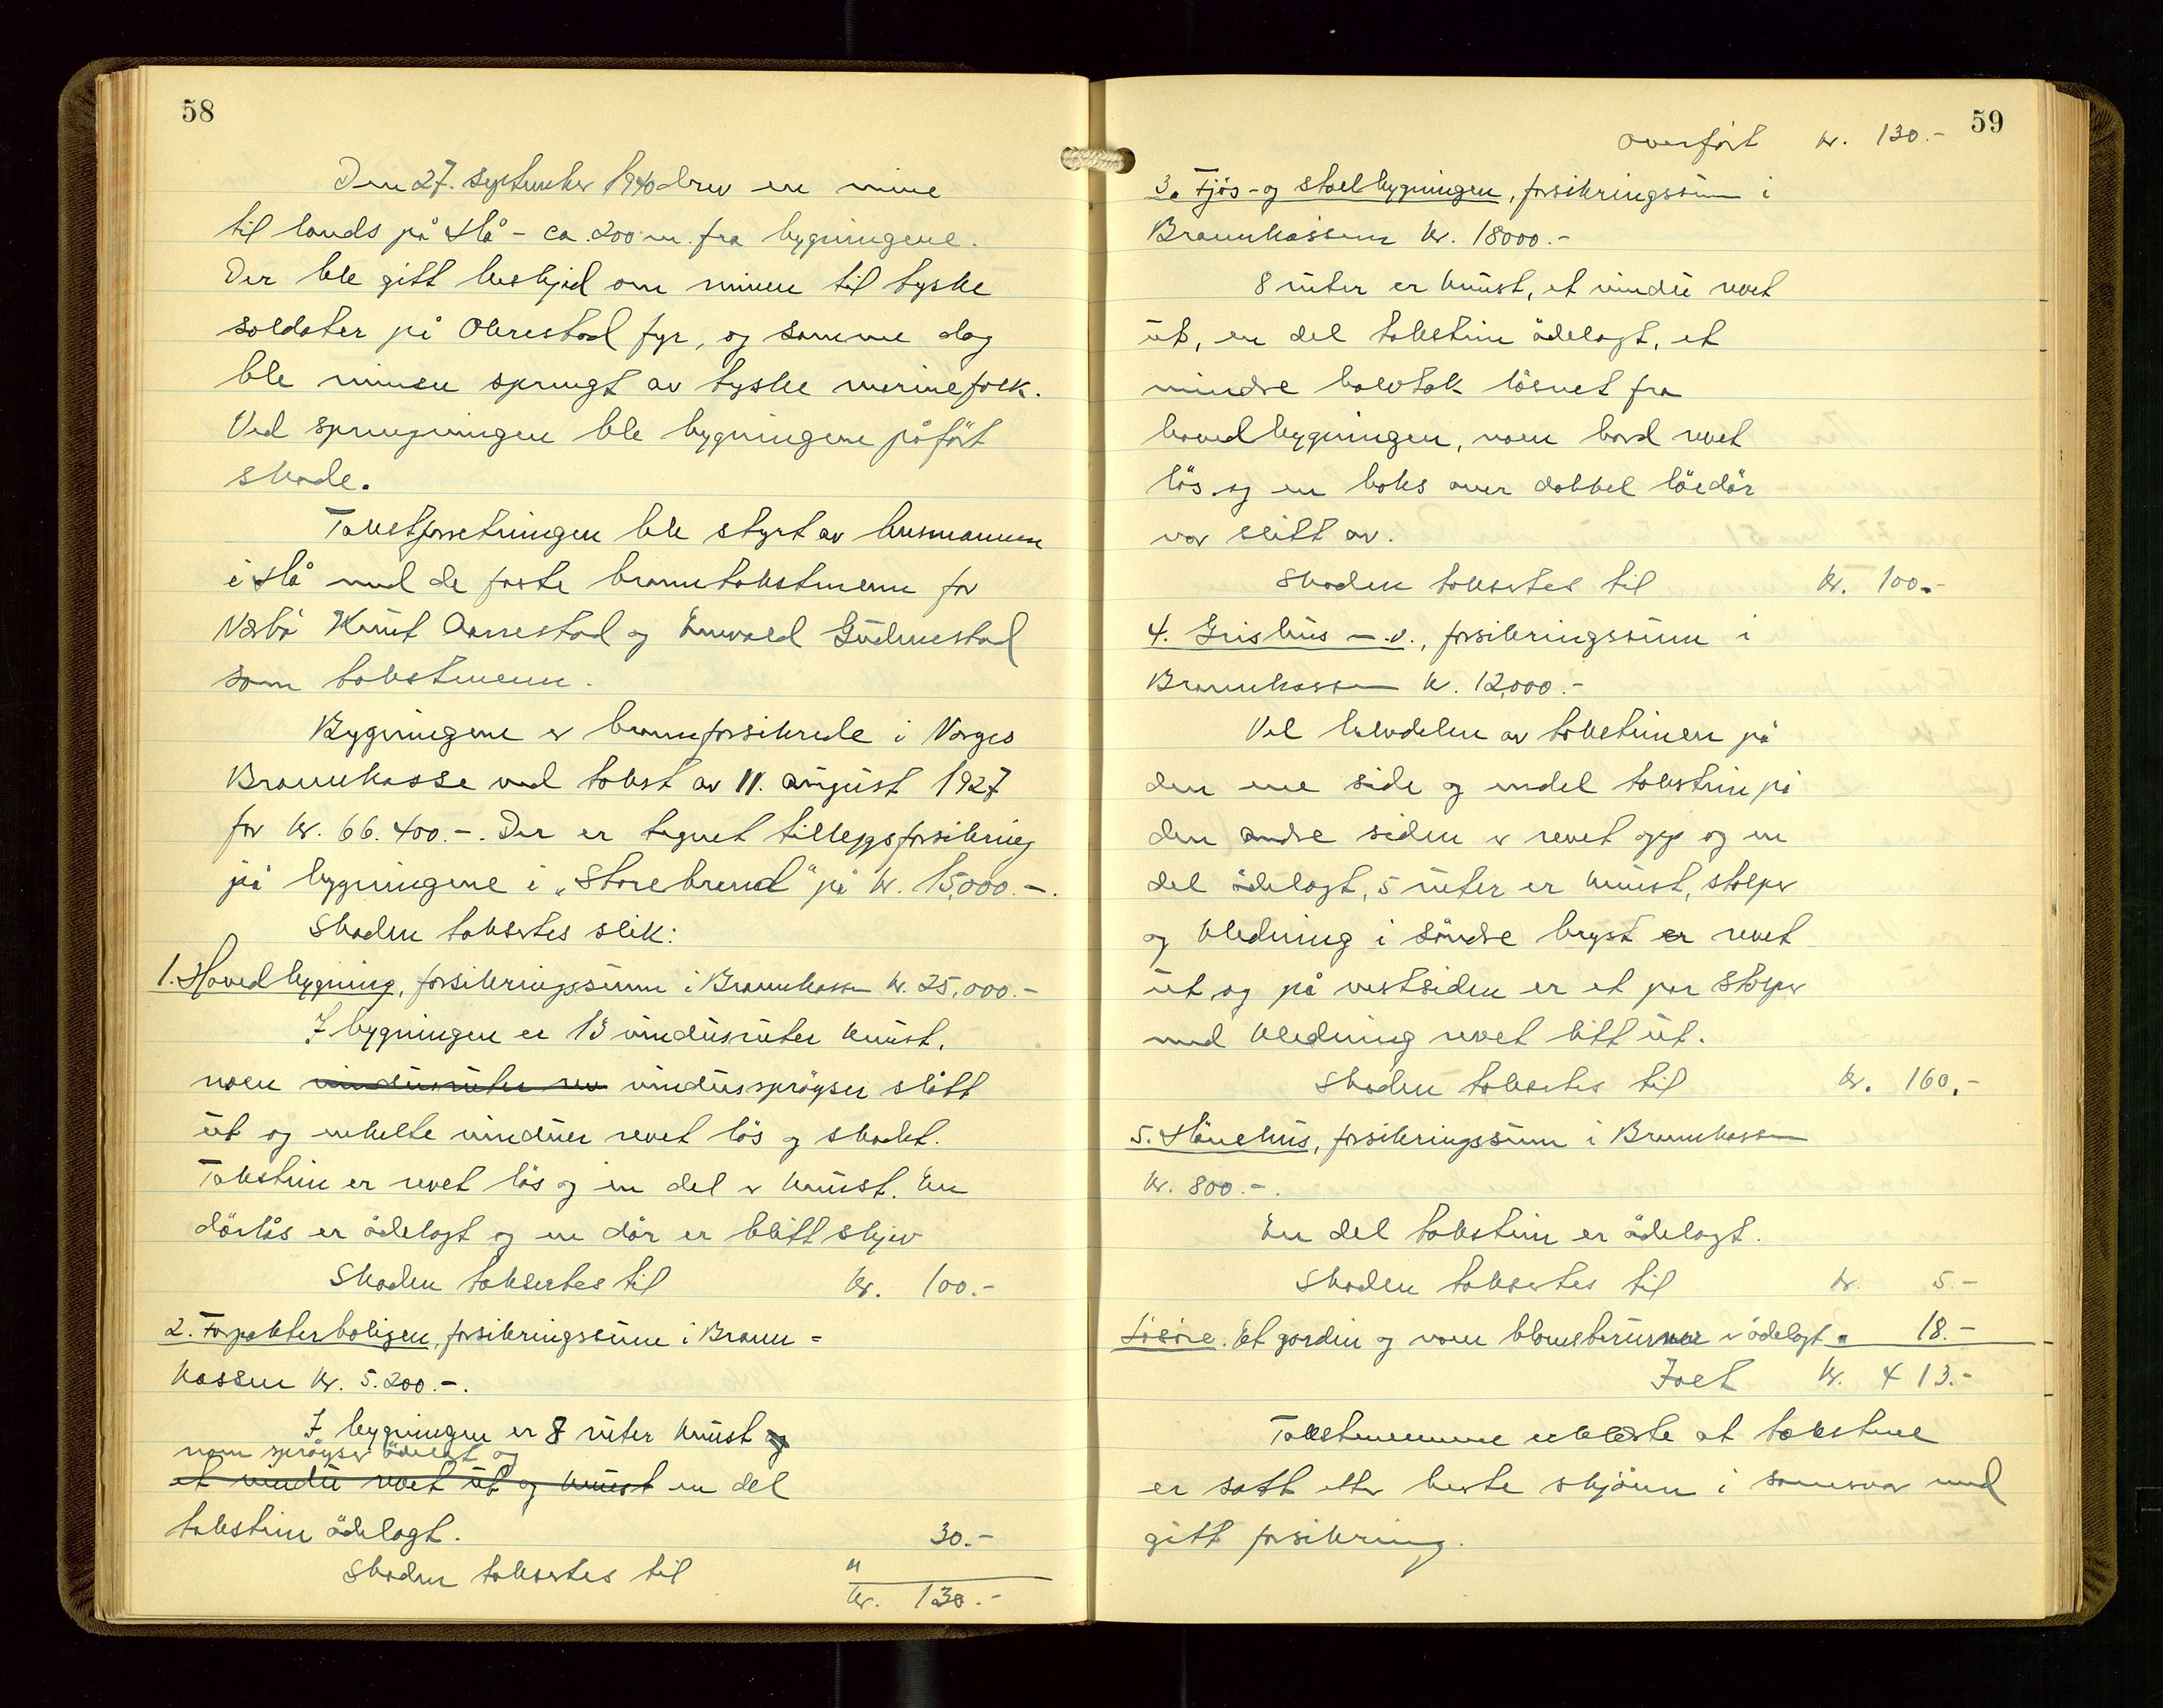 58
Den 27. september 1940 drev en mine
til lands på Hå - ca. 200 m. fra bygningene.
Der ble gitt beskjed om minen til tyske
soldater på Obrestad fyr, og samme dag
ble minen sprengt av tyske marinefolk.
Ved sprengningen ble bygningene påført
skade.
Takstforretningen ble styrt av lensmannen
i Hå med de faste branntakstmenn for
Nærbø Knut Aarrestad og Enevald Gudmestad
som takstmenn.
Bygningene er brannforsikrede i Norges
Brannkasse ved takst av 11. august 1927
for kr. 66.400.-. Der er tegnet tilleggsforsikring
på bygningene i „Storebrand" på kr. 15,000.-.
Skaden taksertes slik:
1. Hovedbygning, forsikringssum i Brannkassen kr. 25,000.-
I bygningen er 13 vindusruter knust,
noen vindusruter rev vindussprøyser slått
ut og enkelte vinduer revet løs og skadet.
Takstein er revet løs og en del er knust. En
dørlås er ødelagt og en dør er blitt skjev
Skaden taksertes til kr. 100.-
2. Forpakterboligen, forsikringssum i Brann-
kassen kr. 5.200.-.
I bygningen er 8 ruter knust og
noen sprøyser ødelagt og
et vindu revet ut og knust en del
takstein ødelagt.
Skaden taksertes til " 30.-
kr. 130.-
59
Overført kr. 130.-
3. Fjøs- og stallbygningen, forsikringssum i
Brannkassen kr. 18000.-
8 ruter er knust, et vindu revet
ut, en del takstein ødelagt, et
mindre halvtak løsnet fra
hovedbygningen, noen bord revet
løs og en boks over dobbel løedør
var slitt av.
Skaden taksertes til kr. 100.-
4. Grishus m.v., forsikringssum i
Brannkassen kr. 12,000.-
Vel halvdelen av taksteinen på
den ene side og endel takstein på
den andre siden er revet opp og en
del ødelagt, 5 ruter er knust, stolper
og kledning i søndre bryst er revet
ut og på vestsiden er et par stolper
med kledning revet litt ut.
Skaden taksertes til kr. 160.-
5. Hønehus, forsikringssum i Brannkassen
kr. 800.-.
En del takstein er ødelagt.
Skaden taksertes til kr. 5.-
Løsøre. Et gardin og noen blomsterurner er ødelagt " 18.-
Ialt kr. 413.-
Takstmennene erklærte at takstene
er satt etter beste skjønn i samsvar med
gitt forsikring.